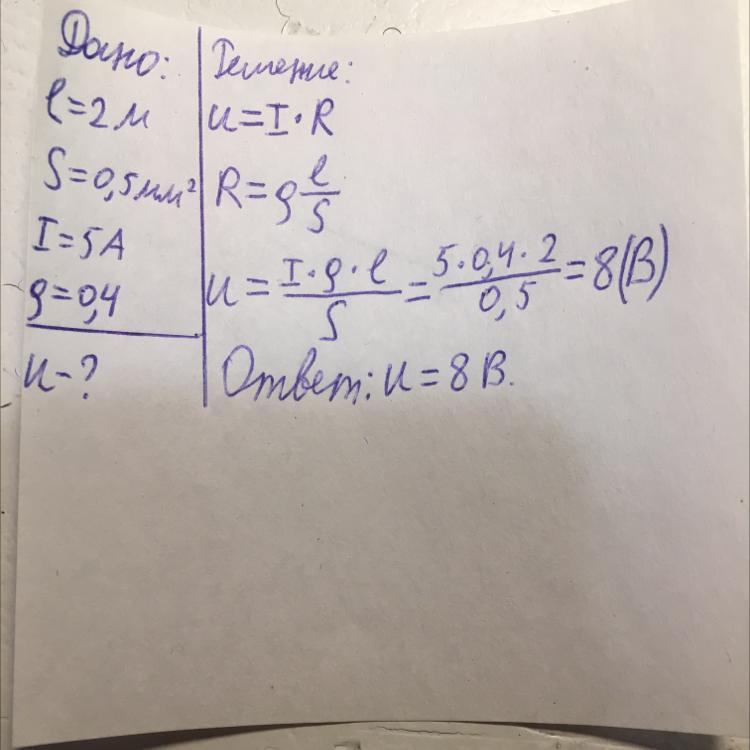 Дано:
l=2м
S=0,5мм²
I=5А
ρ=0,4
U-?
Решение:
U=I·R
R=ρ l/S
U = I·ρ·l/S = 5·0,4·2/0,5 = 8(В)
Ответ: U=8В.